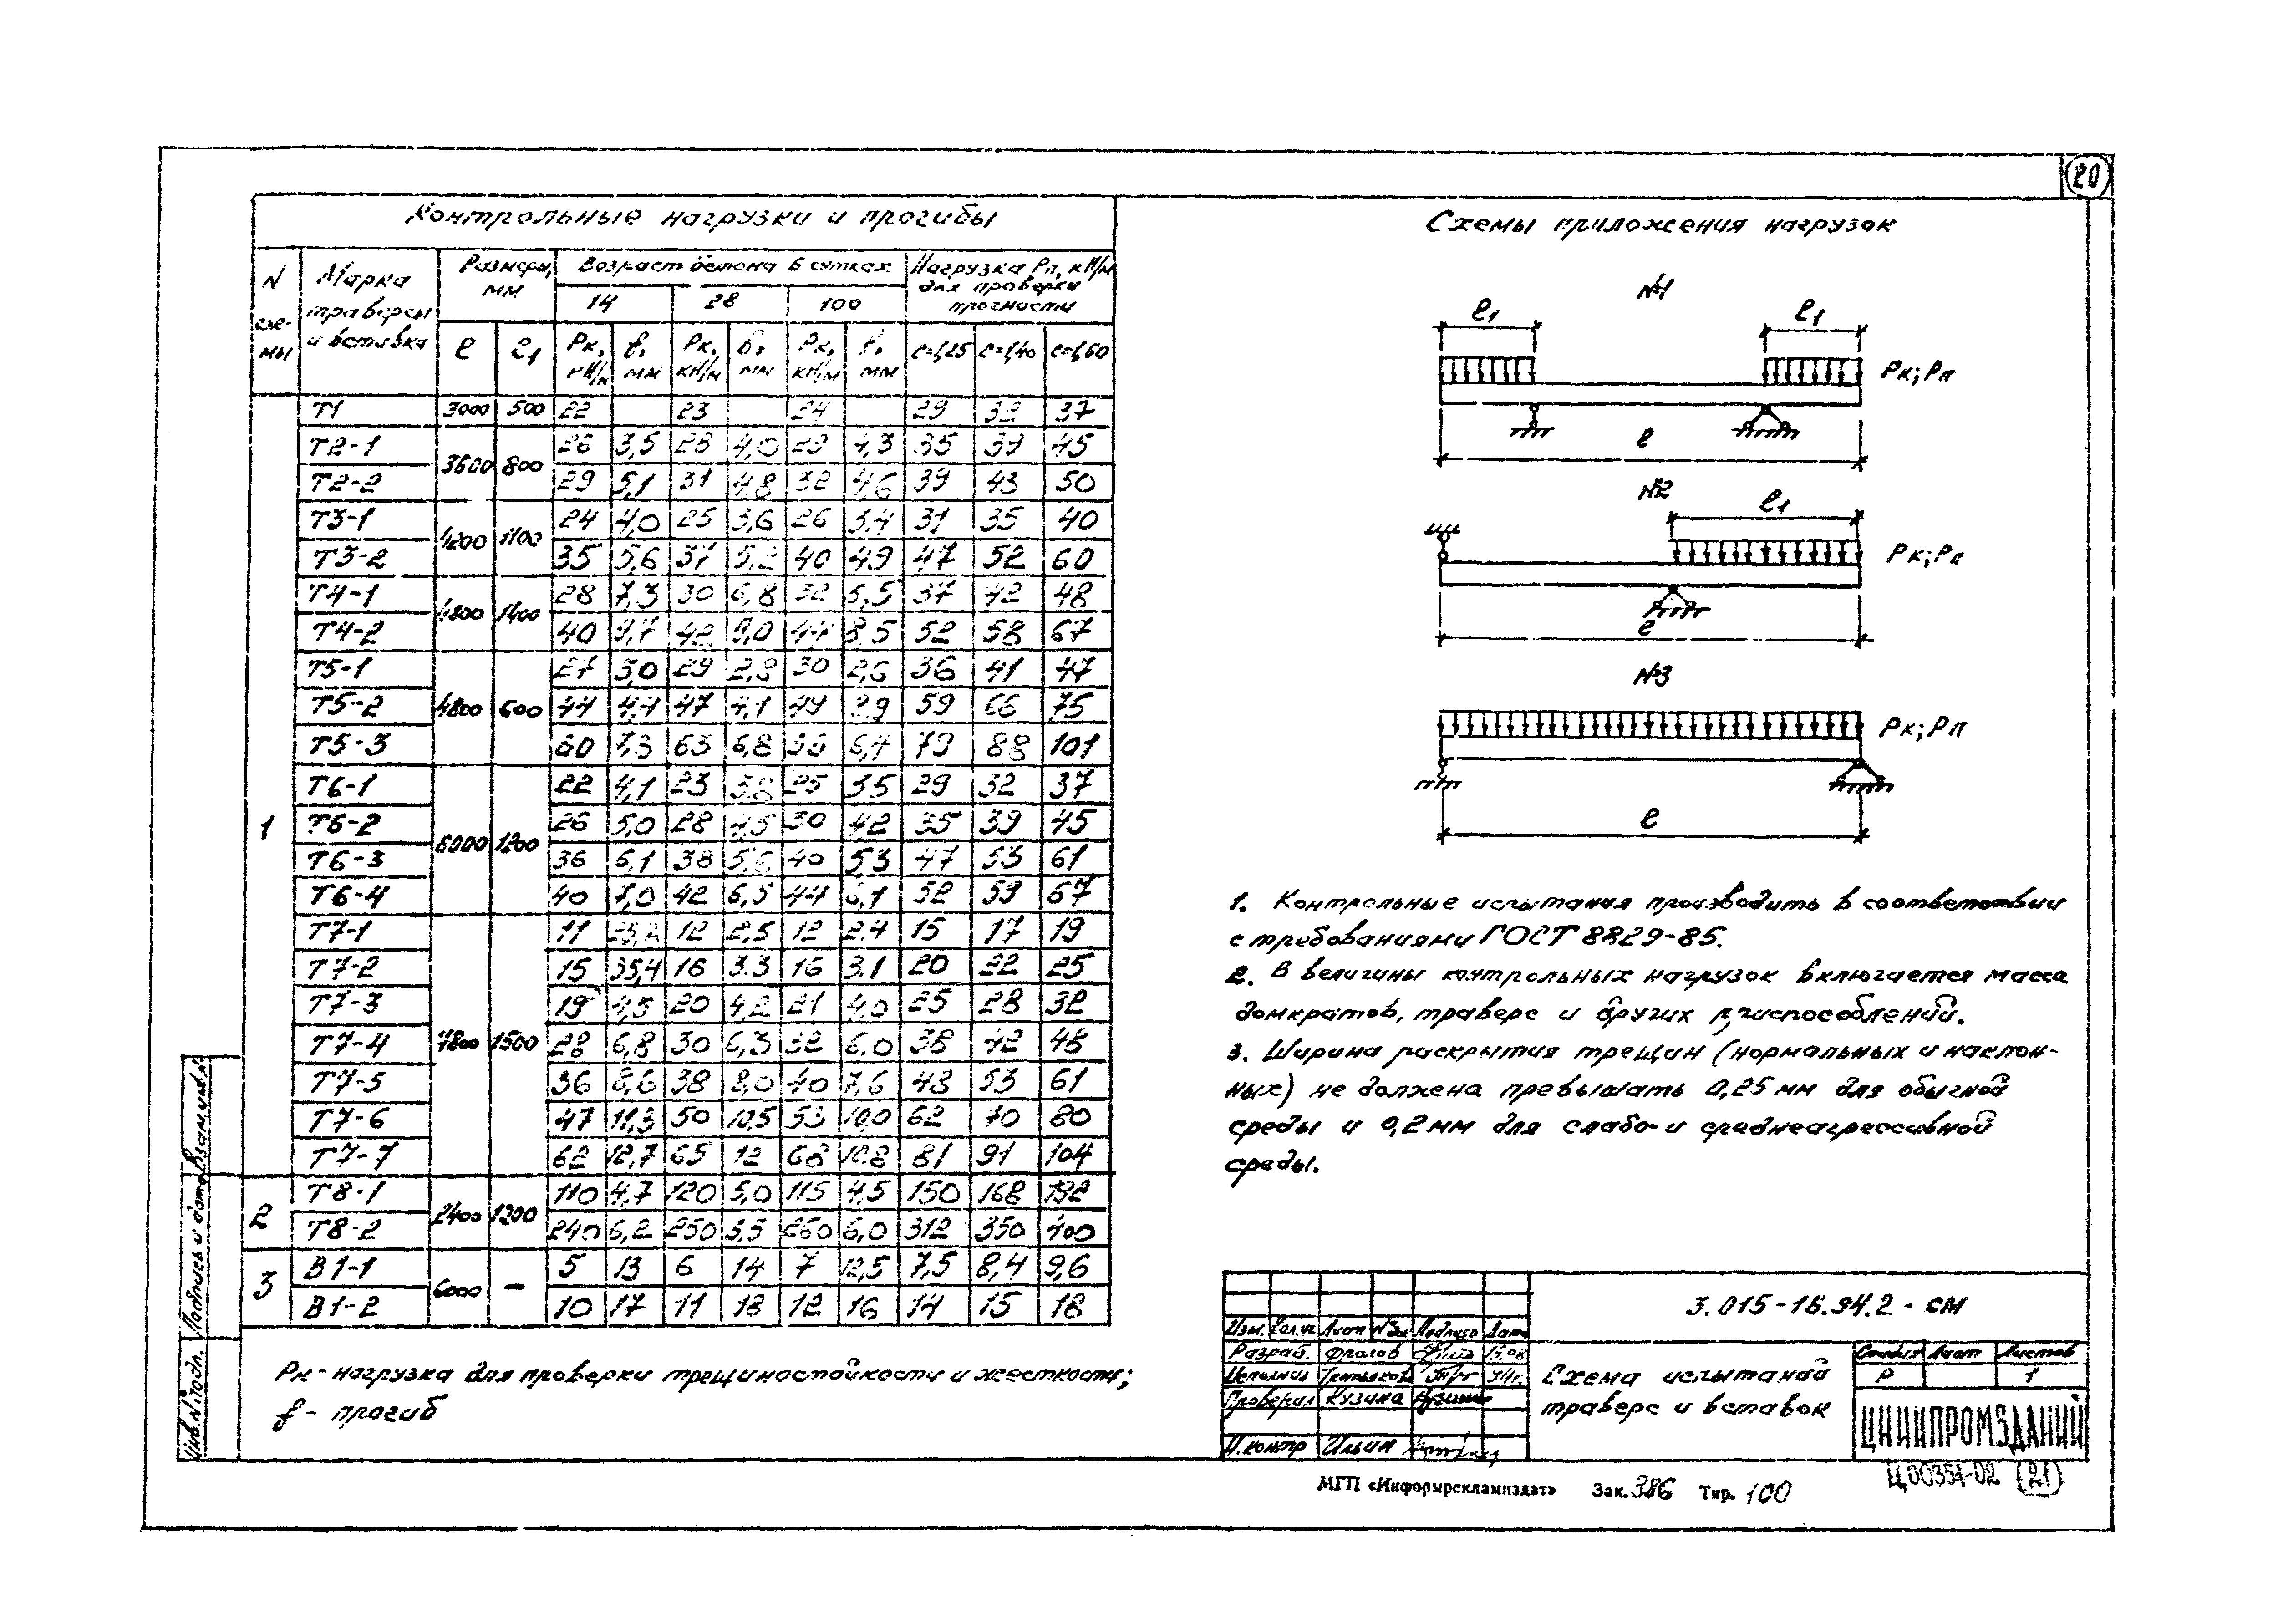 20
Контрольные нагрузки и прогибы
N схе-мы | Марка траверсы и вставки | Размеры, мм | Возраст бетона в сутках | Нагрузка Рп, кН/м для проверки прочности
14 | 28 | 100
ℓ | ℓ1 | Рк, кН/м | f, мм | Рк, кН/м | f, мм | Рк, кН/м | f, мм | с=1,25 | с=1,40 | с=1,60
1
Т1 3000 500 22 23 24 29 32 37
Т2-1 3600 800 26 3,5 28 4,0 29 4,3 35 39 45
Т2-2 29 5,1 31 4,8 32 4,6 39 43 50
Т3-1 4200 1100 24 4,0 25 3,6 26 3,4 31 35 40
Т3-2 35 5,6 37 5,2 40 4,9 47 52 60
Т4-1 4800 1400 28 7,3 30 6,8 32 37 42 48
Т4-2 40 9,7 42 9,0 44 8,5 52 58 67
Т5-1 4800 600 27 3,0 29 2,8 30 2,6 36 41 47
Т5-2 44 4,4 47 4,1 49 3,9 59 66 75
Т5-3 60 7,3 63 6,8 6,4 79 88 101
Т6-1 6000 1200 22 4,1 23 3,8 25 3,5 29 32 37
Т6-2 26 5,0 28 4,5 30 4,2 35 39 45
Т6-3 36 6,1 38 5,6 40 5,3 47 53 61
Т6-4 40 7,0 42 6,5 44 6,1 52 59 67
Т7-1 7800 1500 11 12 2,5 12 2,4 15 17 19
Т7-2 15 35,4 16 3.3 16 3.1 20 22 25
Т7-3 19 4,5 20 4,2 21 4,0 25 28 32
Т7-4 28 6,8 30 6,3 32 6,0 38 42 48
Т7-5 36 8,6 38 8,0 40 7,6 48 53 61
Т7-6 47 11,3 50 10,5 53 10,0 62 70 80
Т7-7 62 12,7 65 12 68 10.8 81 91 104
2
Т8-1 2400 1200 110 4,7 120 5,0 115 4,5 150 168 192
Т8-2 240 6,2 250 5.5 260 6,0 312 350 400
3
В1-1 6000 – 5 13 6 14 7 12,5 7,5 8,4 9,6
В1-2 10 17 11 18 12 16 14 15 18
Рк - нагрузка для проверки трещиностойкости и жесткости;
f - прогиб
Схемы приложения нагрузок
№1
ℓ1 ℓ1
Рк; Рп
ℓ
№2
ℓ1
Рк; Рп
ℓ
№3
Рк; Рп
ℓ
1. Контрольные испытания производить в соответствии
с требованиями ГОСТ 8829-85.
2. В величины контрольных нагрузок включается масса
домкратов, траверс и других приспособлений.
3. Ширина раскрытия трещин (нормальных и наклон-
ных) не должена превышать 0,25 мм для обычной
среды и 0,2 мм для слабо- и среднеагрессивной
среды.
3.015-16.94.2 - СМ
Изм. Кол.уч Лист №док Подпись Дата
Разраб. Фролов
Исполнил Третьяков
Проверил Кузина
Н.контр Ильин
Схема испытаний
траверс и вставок
Стадия Лист Листов
Р 1
ЦНИИПРОМЗДАНИЙ
Инв.№подл. Подпись и дата Взам.инв.№
МГП «Информрекламиздат» Зак. 386 Тир. 100
Ц00351-02 (21)